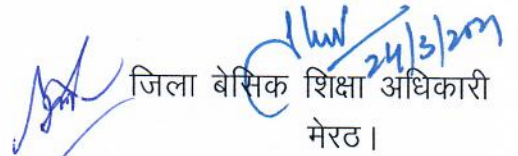 24/3/2021
जिला बेसिक शिक्षा अधिकारी
मेरठ।